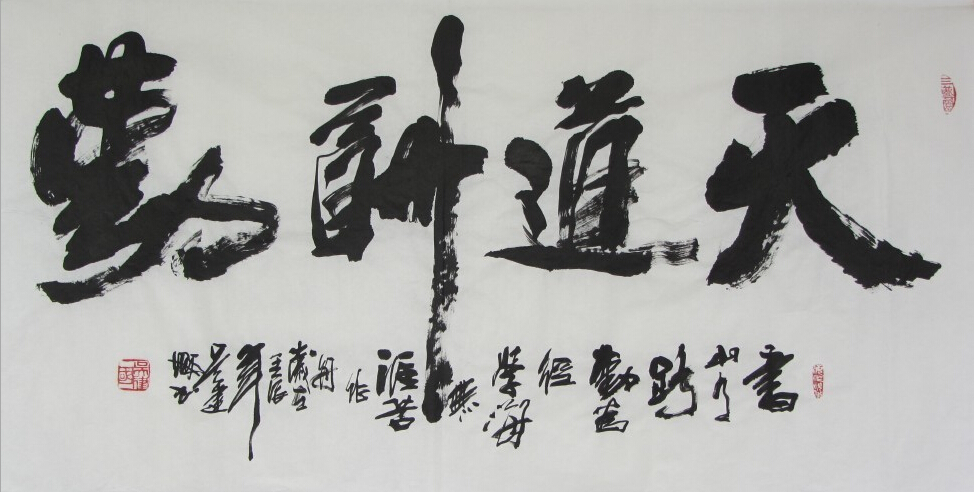 天道酬勤
書山有路勤為径學海無涯苦作舟
歲在壬辰年吴建